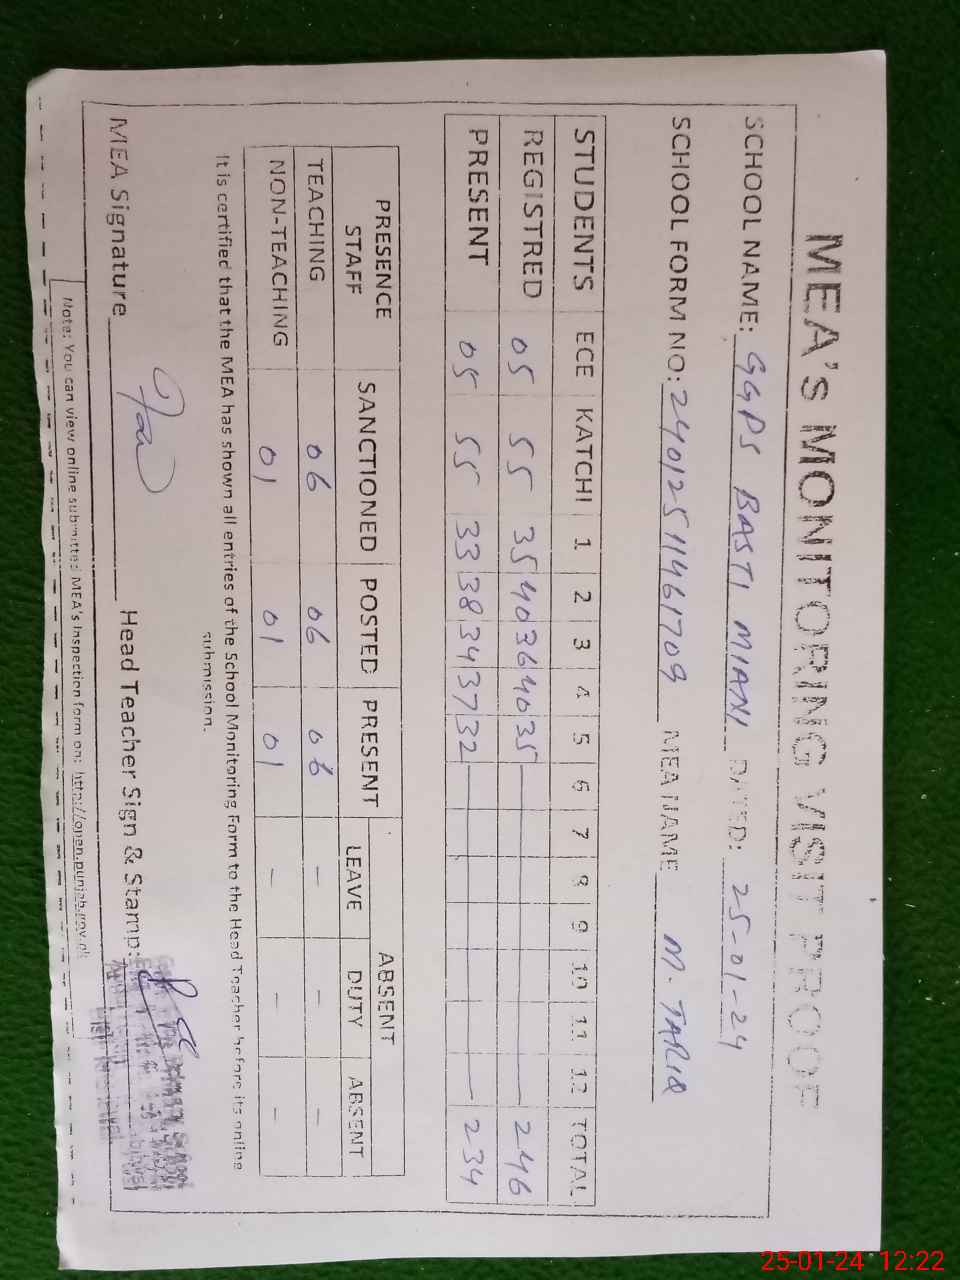 MEA'S MONITORING VISIT PROOF
SCHOOL NAME: GGPS BASTI MIANI DATED: 25-01-24
SCHOOL FORM NO: 24012511461709 MEA NAME M. TARIQ
STUDENTS ECE KATCHI 1 2 3 4 5 6 7 8 9 10 11 12 TOTAL
REGISTRED 05 55 35 40 36 40 35 246
PRESENT 05 55 33 38 34 37 32 234
PRESENCE STAFF SANCTIONED POSTED PRESENT ABSENT
LEAVE DUTY ABSENT
TEACHING 06 06 06 - - -
NON-TEACHING 01 01 01 - - -
It is certified that the MEA has shown all entries of the School Monitoring Form to the Head Teacher before its online
submission.
MEA Signature Head Teacher Sign & Stamp:
Note: You can view online submitted MEA's Inspection form on: http://open.punjab.gov.pk
25-01-24 12:22